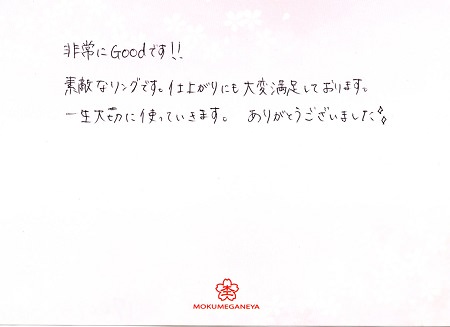 非常にGoodです!!
素敵なリングです。仕上がりにも大変満足しております。
一生大切に使っていきます。 ありがとうございました
MOKUMEGANEYA